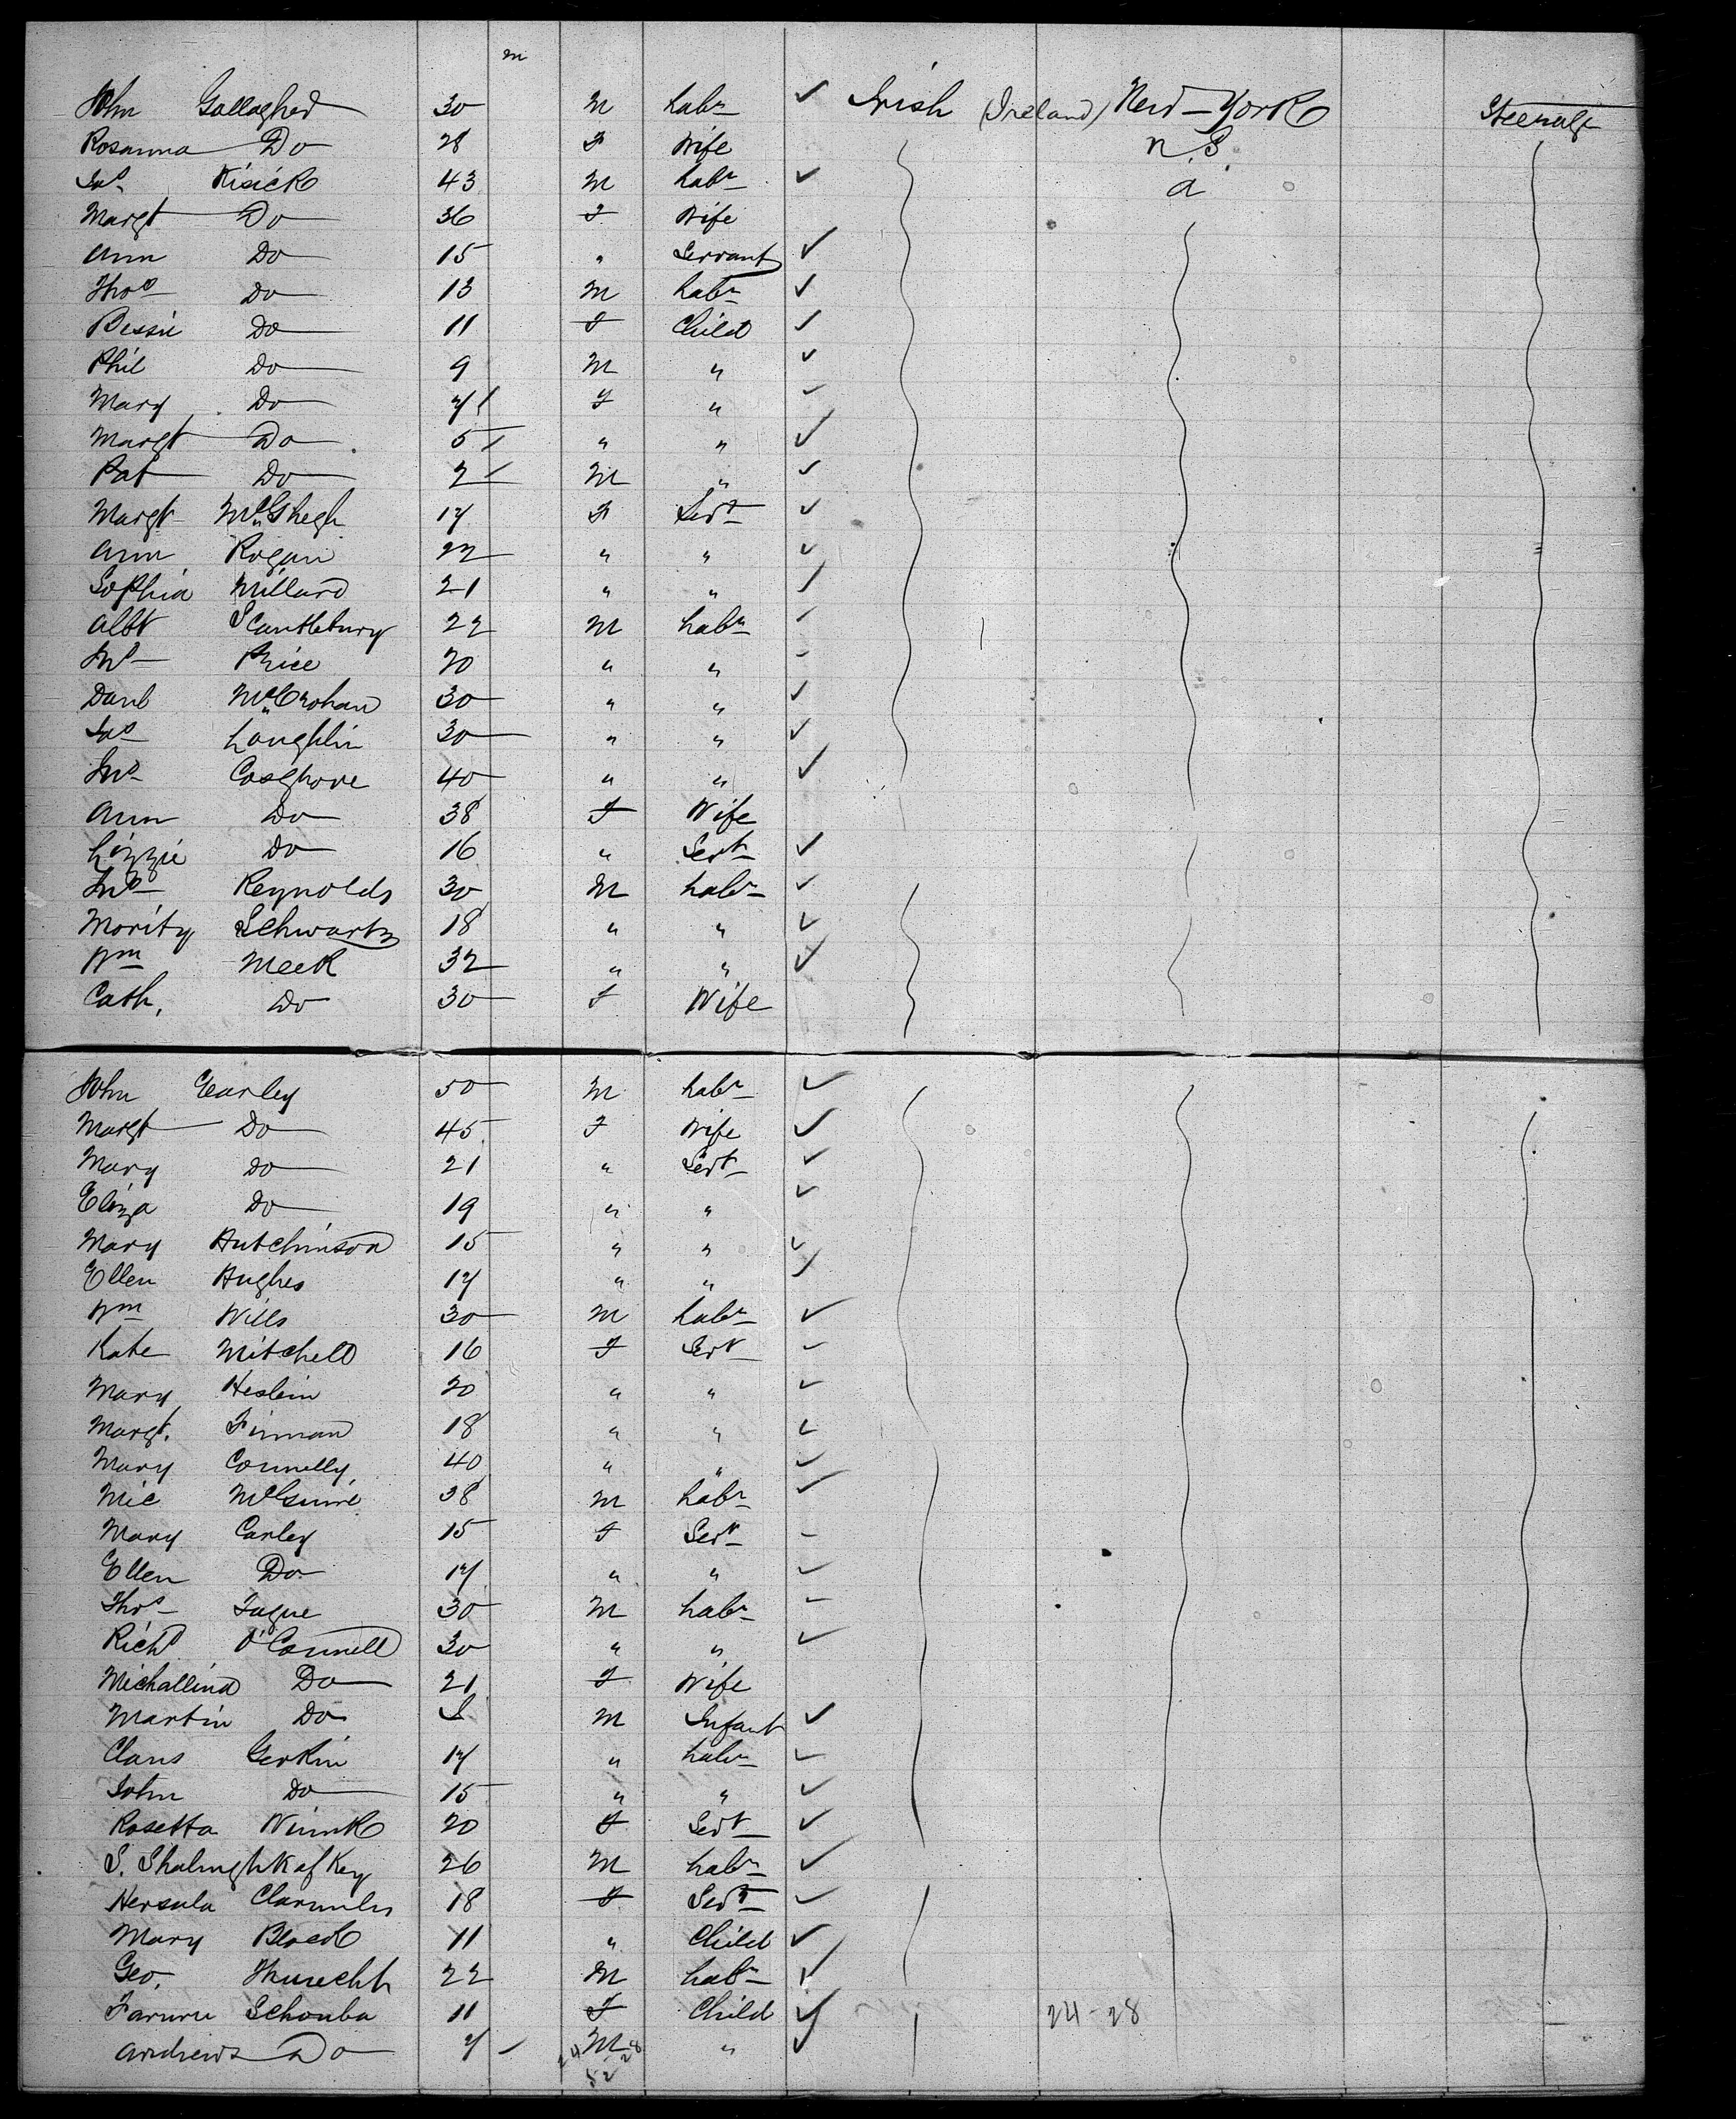 m
John Gallagher 30 M Labr ✓ Irish (Ireland) New-York Steerage
Rosanna Do 28 F Wife n.S.
Jas Kisick 43 M Labr ✓ a
Margt Do 36 F Wife
Ann Do 15 " Servant ✓
Thos Do 13 M Labr ✓
Bessie Do 11 F Child ✓
Phil Do 9 M " ✓
Mary Do 7 F " ✓
Margt Do 5 " " ✓
Pat Do 2 M " ✓
Margt 17 F Servt ✓
Ann Rogan 22 " " ✓
Sophia Millard 21 " " ✓
Albt Scantlebury 22 M Labr ✓
Jno Price 20 " "
Danl McCrohan 30 " " ✓
Jas Loughlin 30 " " ✓
Jno Cosgrove 40 " " ✓
Ann Do 38 F Wife
Lizzie Do 16 " Servt ✓
Jno Reynolds 30 M Labr ✓
Moritz Schwartz 18 " " ✓
Wm Meek 32 " " ✓
Cath. Do 30 F Wife
John Earley 50 M Labr ✓
Margt Do 45 F Wife ✓
Mary Do 21 " Servt ✓
Eliza Do 19 " " ✓
Mary Hutchinson 15 " " ✓
Ellen Hughes 17 " " ✓
Wm Wills 30 M Labr ✓
Kate Mitchell 16 F Servt
Mary Heslin 20 " " ✓
Margt. Finnan 18 " " ✓
Mary Connelly 40 " " ✓
Mic McGuire 38 M Labr ✓
Mary Carley 15 F Servt
Ellen Do 17 " " ✓
Thos Tague 30 M Labr
Richd O'Connell 30 " " ✓
Michallina Do 21 F Wife
Martin Do M Infant ✓
Claus Gerkin 17 " Labr ✓
John Do 15 " " ✓
Rosetta 20 F Servt ✓
S. 26 M Labr ✓
Hersula 18 F Servt ✓
Mary 11 " Child ✓
Geo. 22 M Labr ✓
Schouba 11 F Child ✓ 24-28
Andrews Do 7 M " ✓
24 28
52